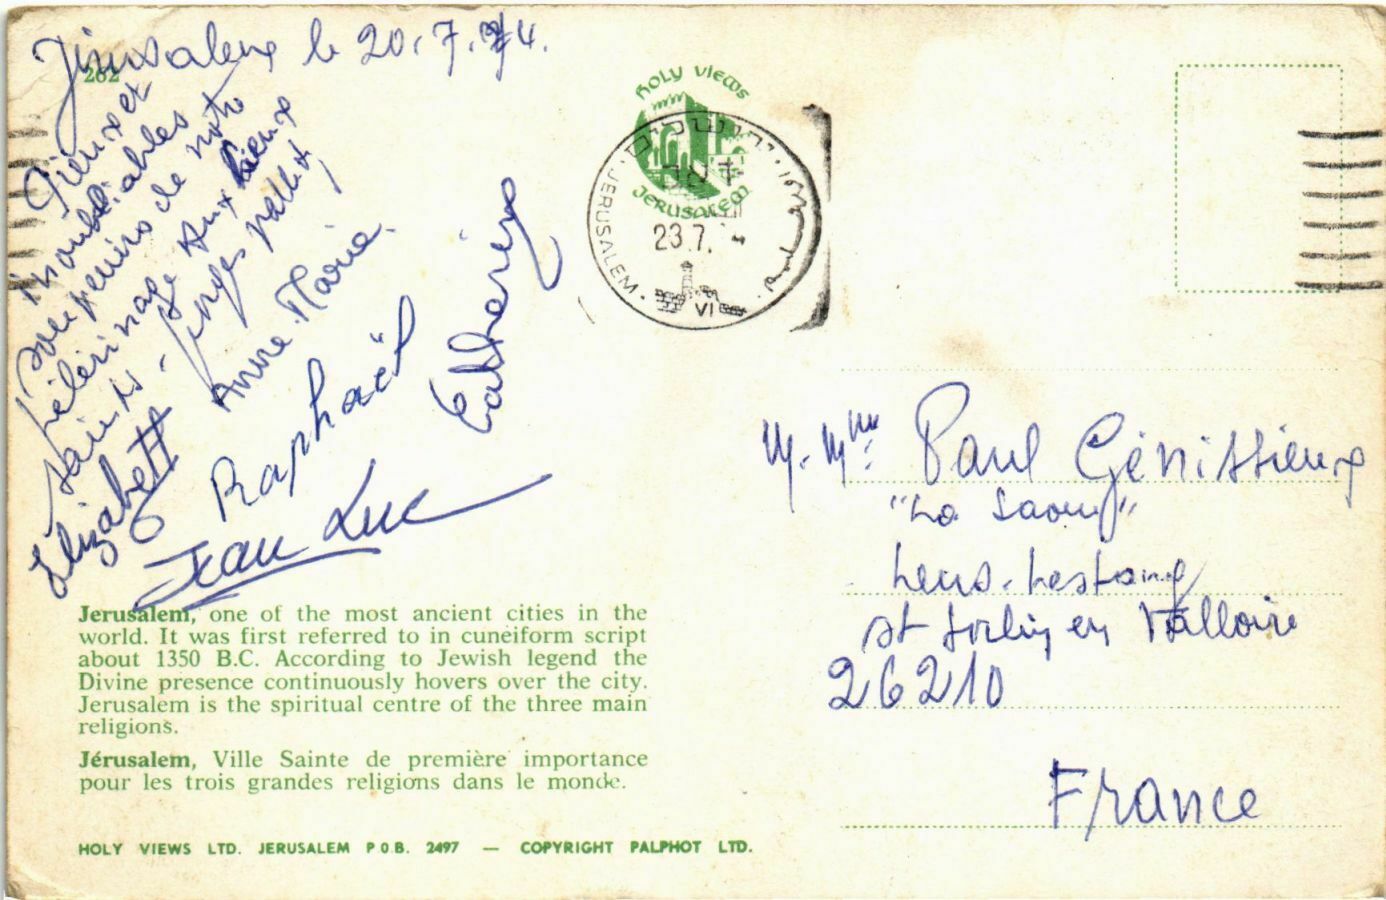 Jérusalem le 20.7.74.
262
Pieux et
inoubliables
souvenirs de notre
pélérinage aux lieux
saints.
Anne. Marie.
Elizabeth
Raphaël
Catherine
Jean Luc
HOLY VIEWS
JERUSALEM
ירושלים
JERUSALEM
23.7.
VI
M. Mme. Paul Génissieux
"La
Lens-Lestang
St Sorlin en Valloire
26210
France
Jerusalem, one of the most ancient cities in the
world. It was first referred to in cuneiform script
about 1350 B.C. According to Jewish legend the
Divine presence continuously hovers over the city.
Jerusalem is the spiritual centre of the three main
religions.
Jérusalem, Ville Sainte de première importance
pour les trois grandes religions dans le monde.
HOLY VIEWS LTD. JERUSALEM P O.B. 2497 — COPYRIGHT PALPHOT LTD.